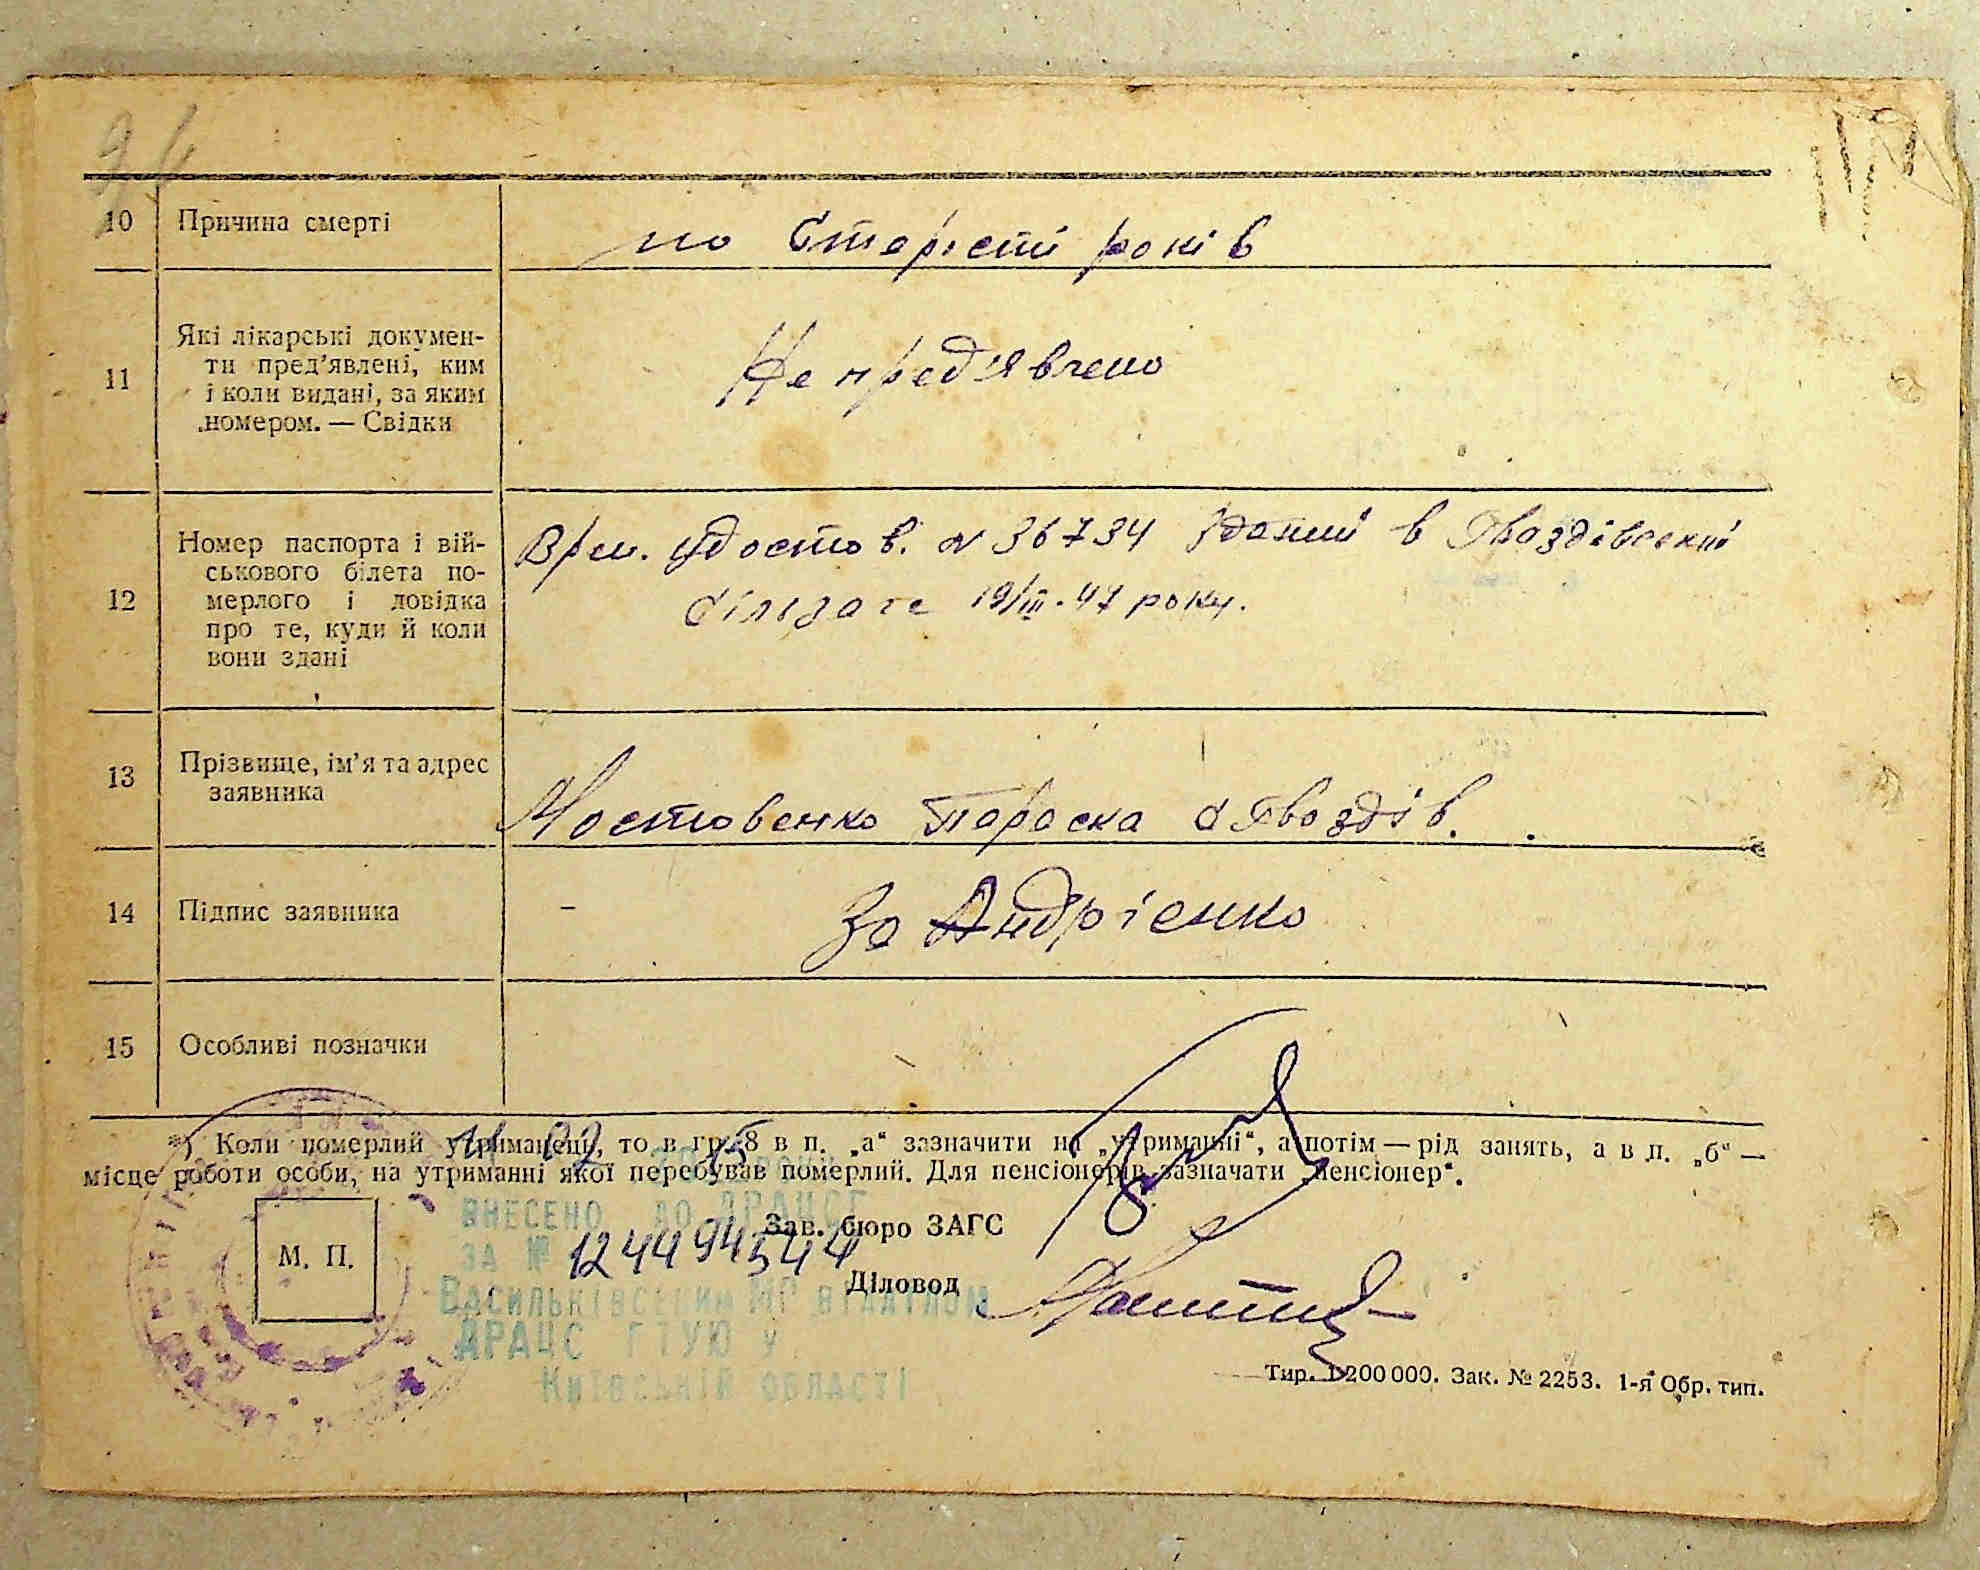 10 Причина смерті по старісті років
11 Які лікарські докумен-
ти пред'явлені, ким
і коли видані, за яким
номером. — Свідки
Не пред'явлено
12 Номер паспорта і вій-
ськового білета по-
мерлого і довідка
про те, куди й коли
вони здані
Врем. удостов. № 36734 зданий в Гвоздівський
сільраде 19/III-47 року.
13 Прізвище, ім'я та адрес
заявника
Мостовенко Параска с Гвоздів.
14 Підпис заявника - За Андрієнко
15 Особливі позначки
*) Коли померлий утриманець, то в гр. 8 в п. „а“ зазначити на „утриманні“, а потім — рід занять, а в п. „б“ —
місце роботи особи, на утриманні якої перебував померлий. Для пенсіонерів зазначати „пенсіонер“.
ВНЕСЕНО ДО ДРАЦСГ
Зав. бюро ЗАГС
ЗА № 12449454
М. П.
Діловод
Васильківським МР відділом
ДРАЦС ГТУЮ у
Київській області
Тир. 1 200 000. Зак. № 2253. 1-я Обр. тип.